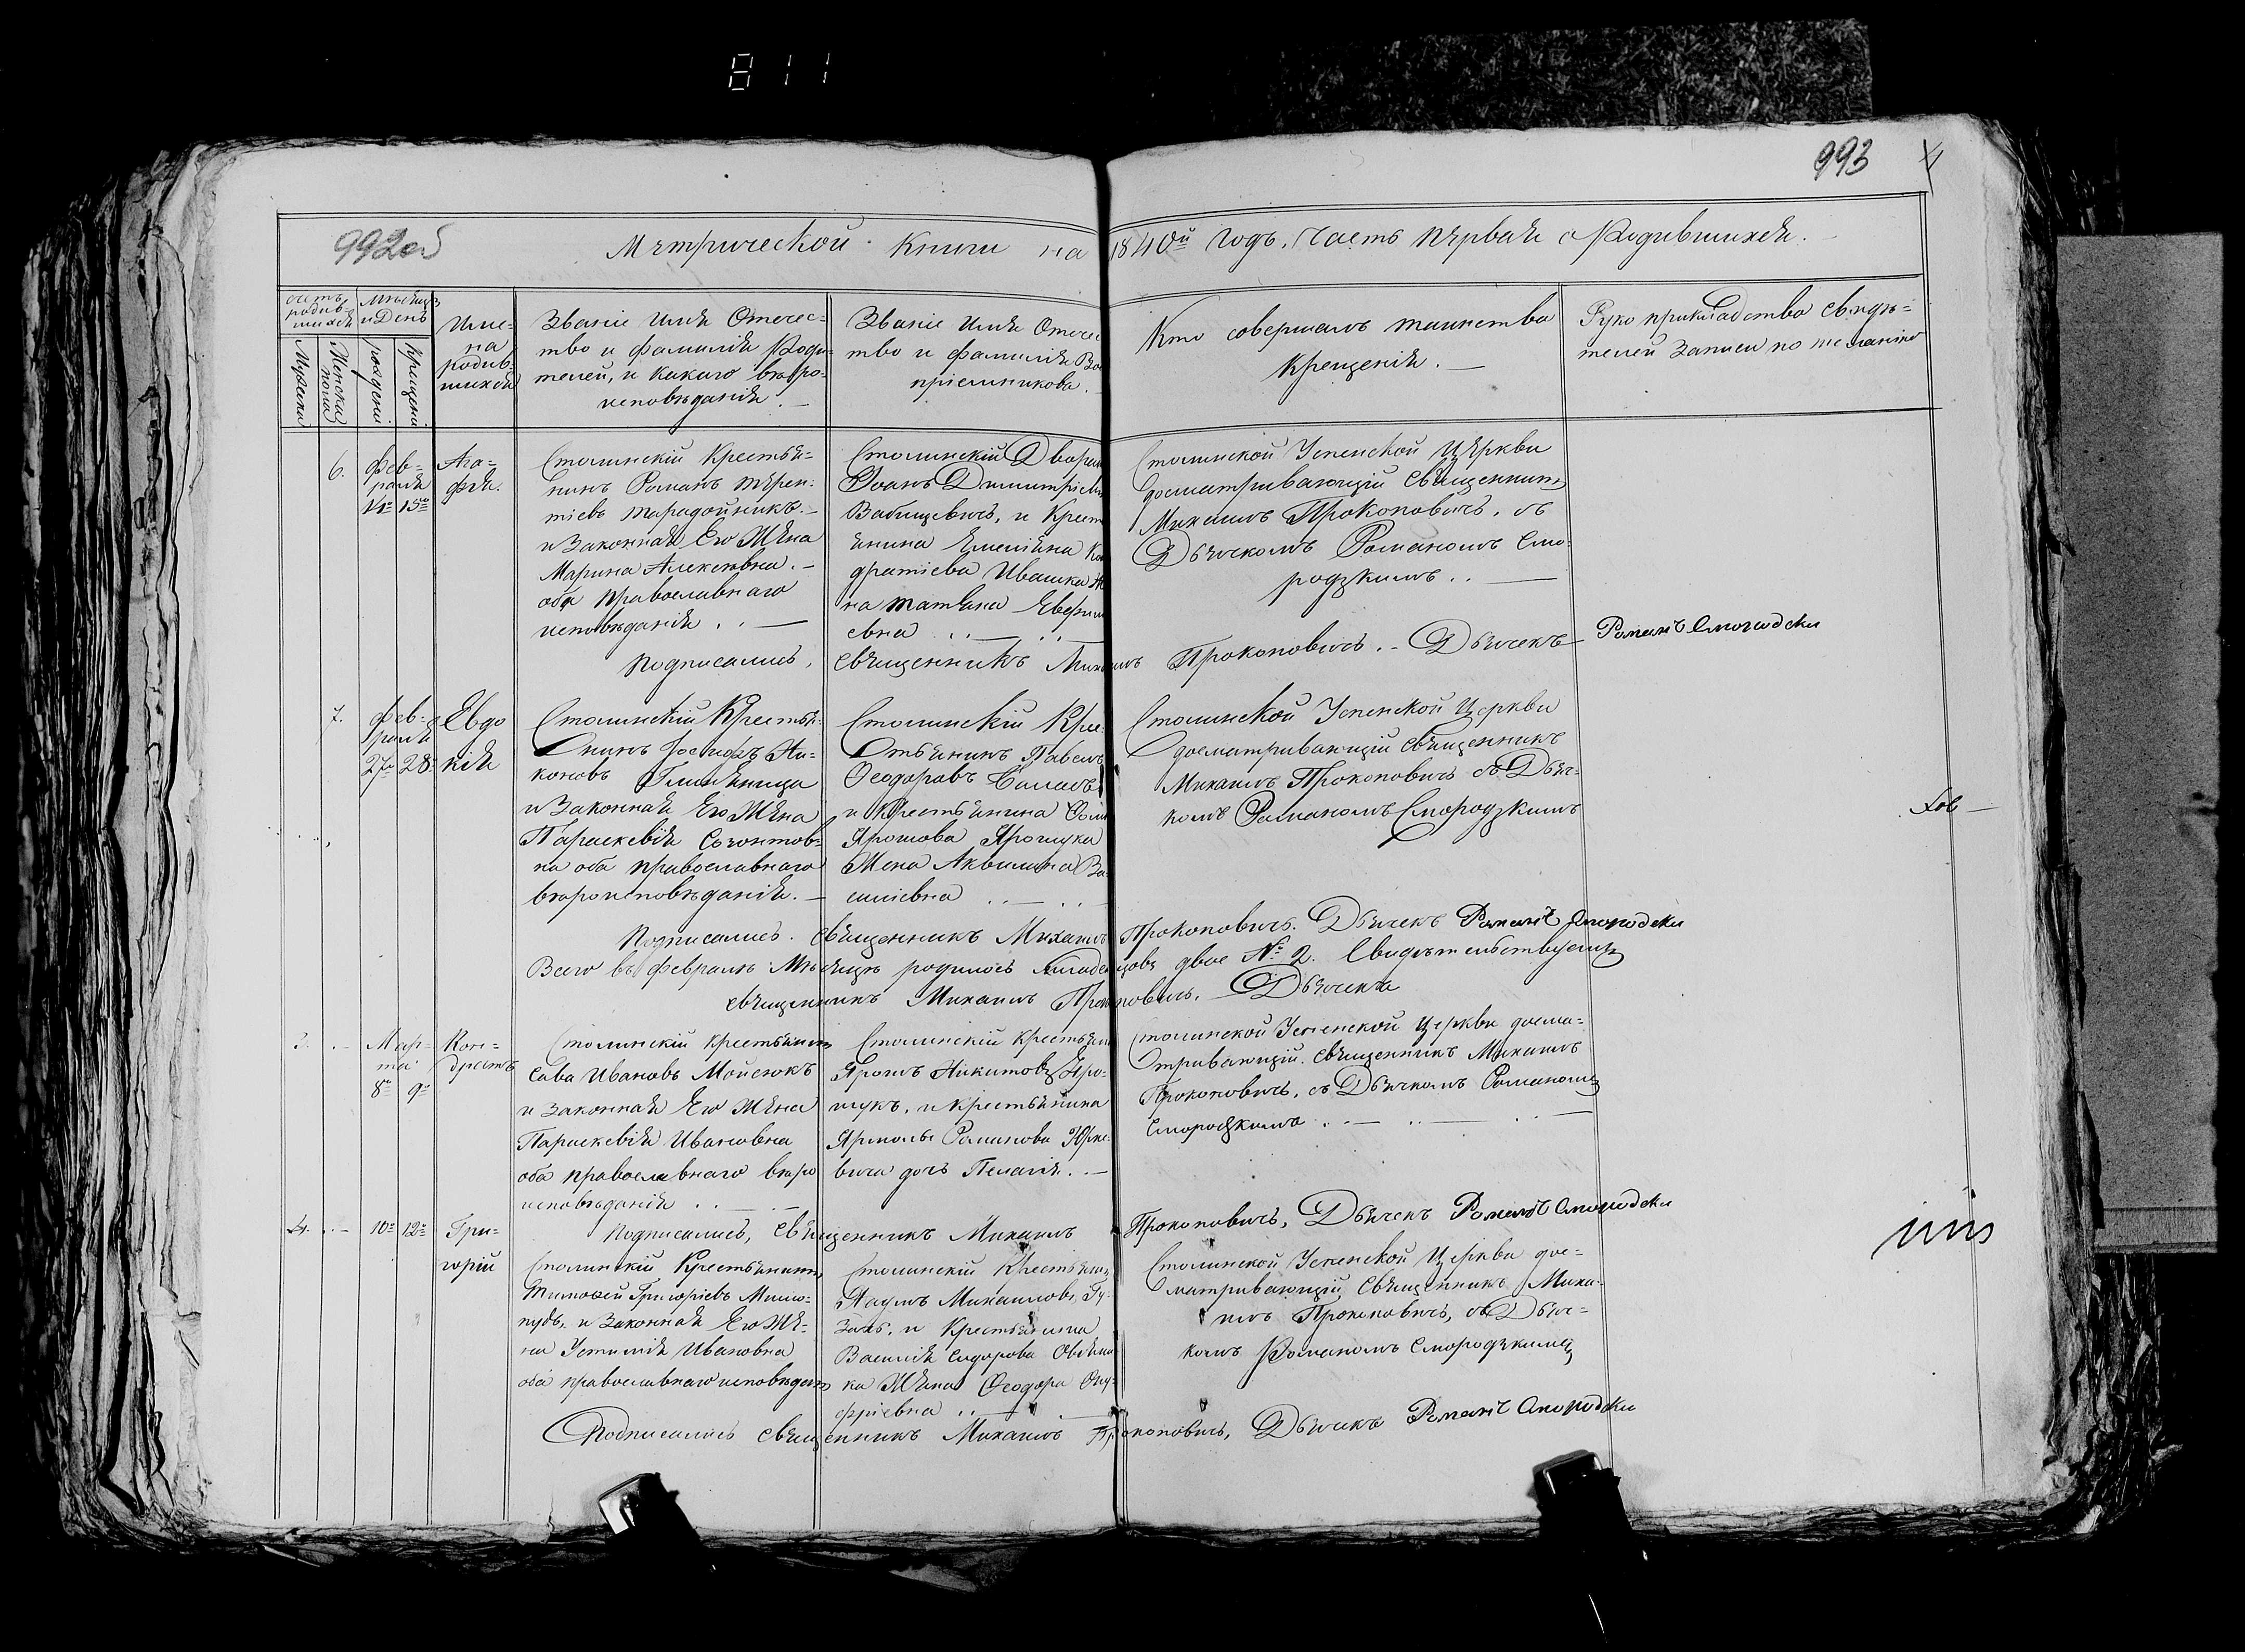 811
993
992об
Метрической Книги на 1840й годъ, Часть первая о Родившихся.
Мѣсяцъ
и День
Мужеска
Женска
пола
рожденія
Крещенія
Име-
на
родив-
шихся
Званіе Имя Отечес-
тво и фамилія Роди-
телей, и Какого вѣро-
исповѣданія
Званіе Имя Отечес
тво и фамилія Вос
пріемниковъ
Кто совершалъ таинство
Крещенія.
Руко прикладство свидѣ-
телей записи по желанію
6.
Фев-
раля
14е 15го
Ага-
фія.
Столинскій Крестья-
нинъ Романъ Терен-
тіевъ
и Законная Его Жена
Марина Алексѣевна. -
оба православнаго
исповѣданія
Столинскій Дворян
Іоанъ Димитріевъ
Вабищевичъ, и Крест
янина Емеліяна Кон
дратіева Ивашка Же
на Татяна Евфим
евна
Столинской Успенской Церкви
досматривающій Священникъ
Михаилъ Прокоповичъ, съ
Дьячкомъ Романомъ Смо-
родзкимъ
Подписались, Священникъ Михаилъ Прокоповичъ. - Дьячекъ Романъ Смородски
7.
Фев-
раля
27е 28
Евдо
кія
Столинскій Крестья-
нинъ Іосифъ Ни-
коновъ
и Законная Его Жена
Параскевія
на оба православнаго
вѣроисповѣданія. -
Столинскій Кре-
стьянинъ Павелъ
Ѳеодоровъ
и Крестьянина Ѳомы
Ярошова Ярошука
Жена Аквилина Ва
силіевна
Столинской Успенской Церкви
досматривающій Священникъ
Михаилъ Прокоповичъ съ Дьяч-
комъ Романомъ Смородзкимъ
Подписались. Священникъ Михаилъ Прокоповичъ. Дьячекъ Романъ Смородски
Всего въ февралѣ Мѣсяцѣ родилось Младенцовъ двое № 2. Свидѣтельствуемъ
священникъ Михаилъ Прокоповичъ. Дьячекъ
3.
Мар-
та
8е 9е
Кон-
дратъ
Столинскій крестьянинъ
Сава Ивановъ Мойсюкъ
и законная Его Жена
Параскевія Ивановна
оба православнаго вѣро
исповѣданія
Столинскій Крестьянин
Ярошъ Никитовъ Яро-
шукъ, и Крестьянина
Ярмолы Романова Юрке-
вича дочь Пелагія. -
Столинской Успенской Церкви досма-
тривающій Священникъ Михаилъ
Прокоповичъ, съ Дьячкомъ Романомъ
Смородзкимъ
Подписались, Священникъ Михаилъ Прокоповичъ, Дьячекъ Романъ Смородски
4.
10е 12е
Гри-
горій
Столинскій Крестьянинъ
Тимоѳей Григоріевъ
и Законная Его Же-
на Устинія Ивановна
оба православнаго исповѣдан
Столинскій Крестьянинъ
Наумъ Михаиловъ
и Крестьянина
Василія Сидорова
ка Жена Ѳеодора Ону-
фріевна
Столинской Успенской Церкви дос-
матривающій Священникъ Миха-
илъ Прокоповичъ, съ Дьяч-
комъ Романомъ Смородзкимъ
Подписались Священникъ Михаилъ Прокоповичъ, Дьячекъ Романъ Смородски